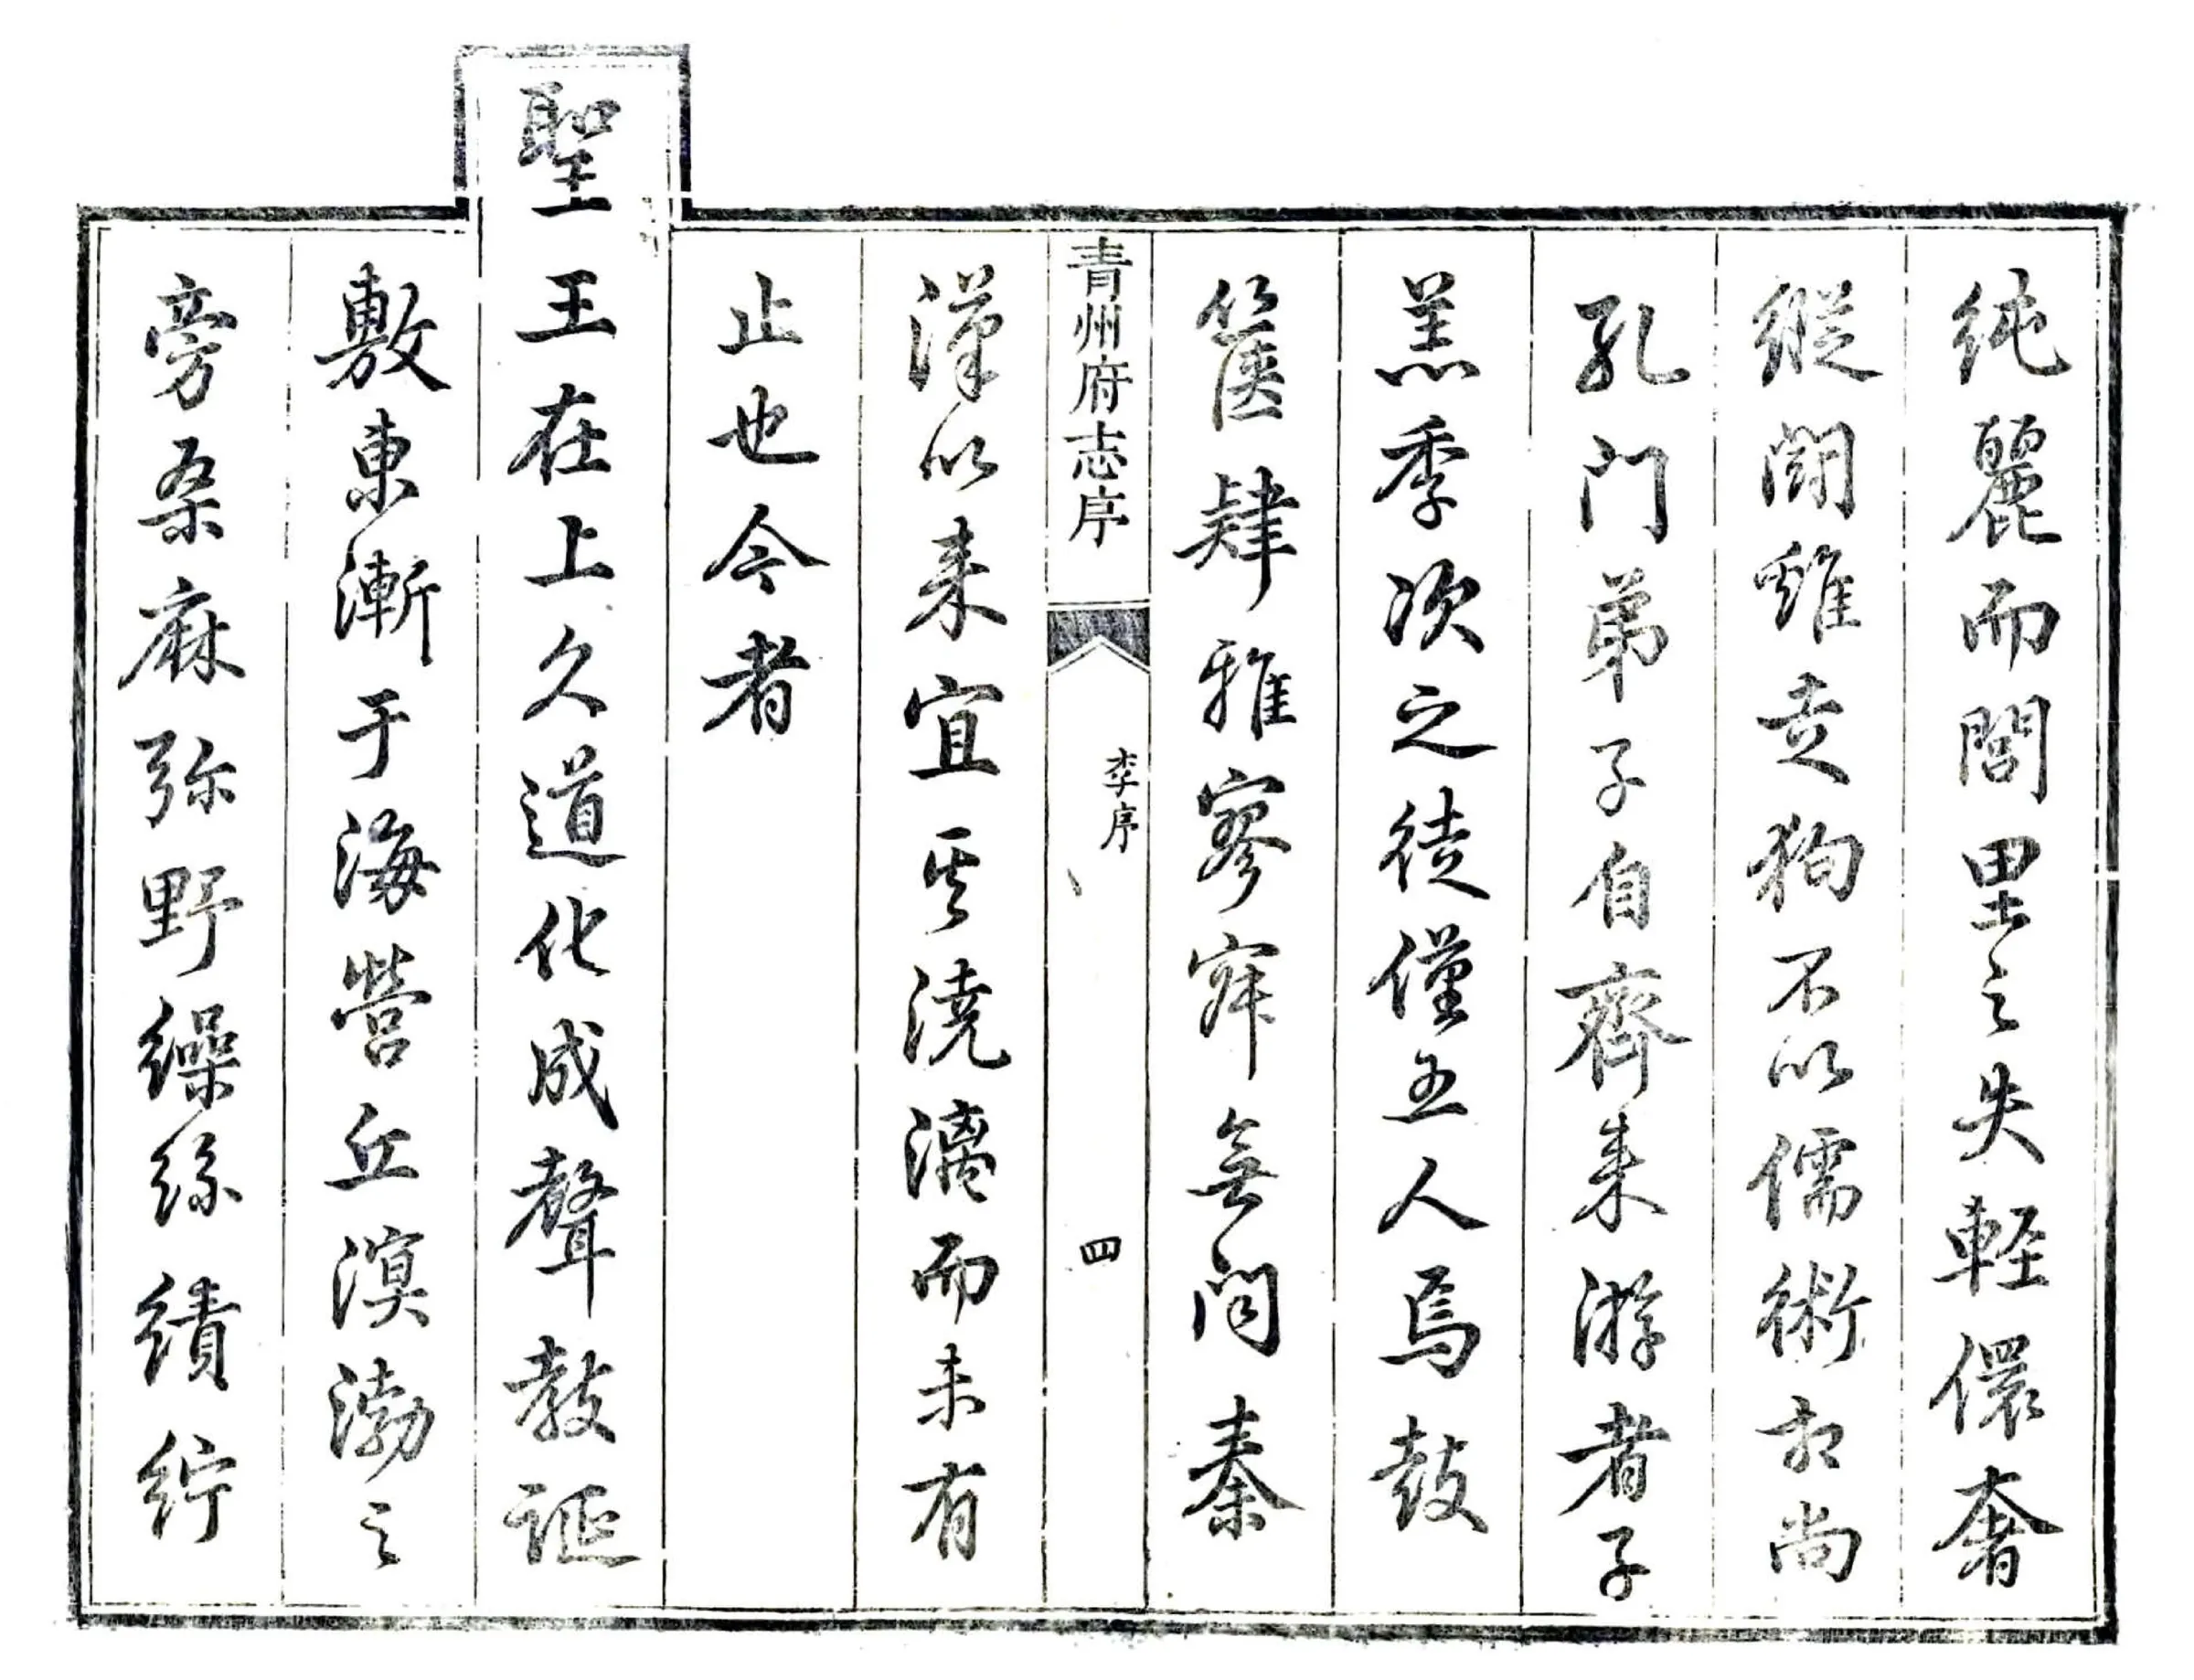 純麗而閭里之失輕儇奢
縱鬪雞走狗不以儒術相尚
孔門弟子自齊來游者子
羔季次之徒僅五人焉鼓
篋肄雅寥寂無聞秦
漢以來宜其澆漓而未有
止也今者
聖王在上久道化成聲教誕
敷東漸于海營丘溟渤之
旁桑麻弥野繰絲績紵
青州府志序
李序
四